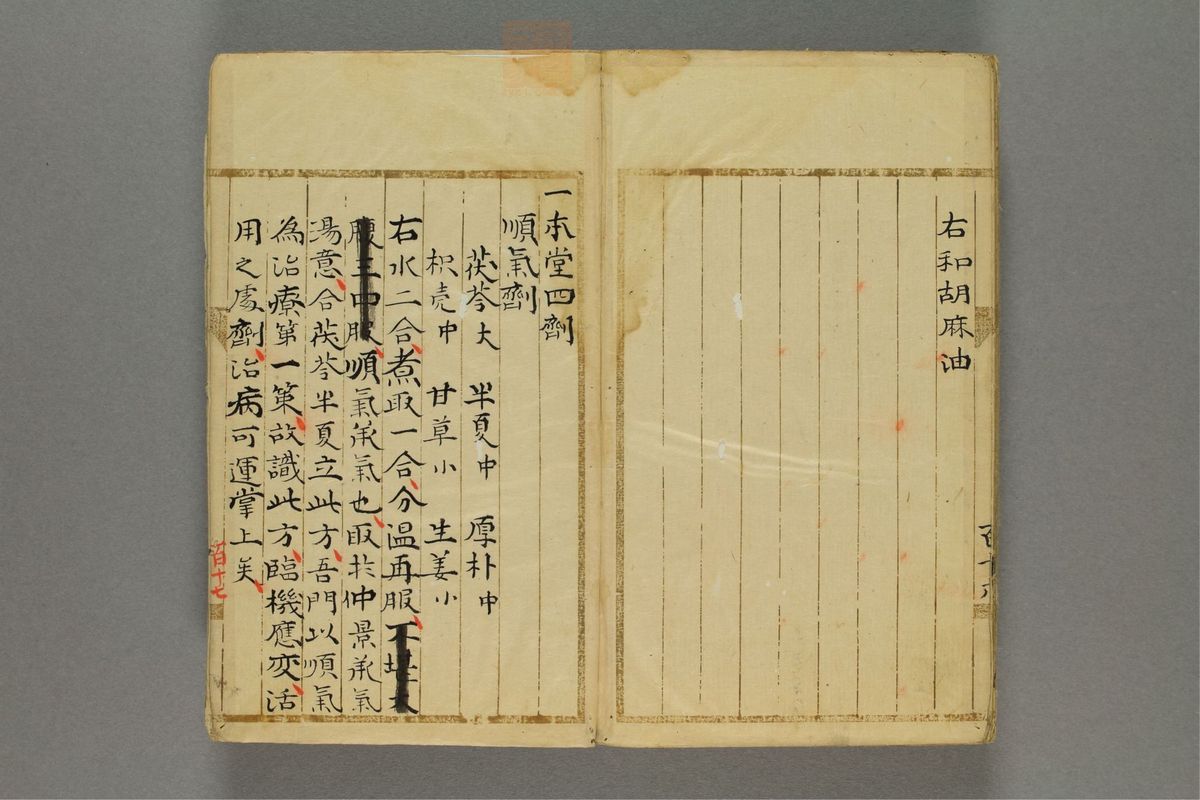 右和胡麻油
百十六
一本堂四劑
順氣劑
茯苓大　半夏中　厚朴中
枳壳中　甘草小　生姜小
右水二合、煮取一合、分温再服、不堪大
腹三中服、順氣承氣也、取扵仲景承氣
湯意、合茯苓半夏立此方、吾門以順氣
為治療第一策、故識此方、臨機應変、活
用之處劑、治病可運掌上矣、
百十七